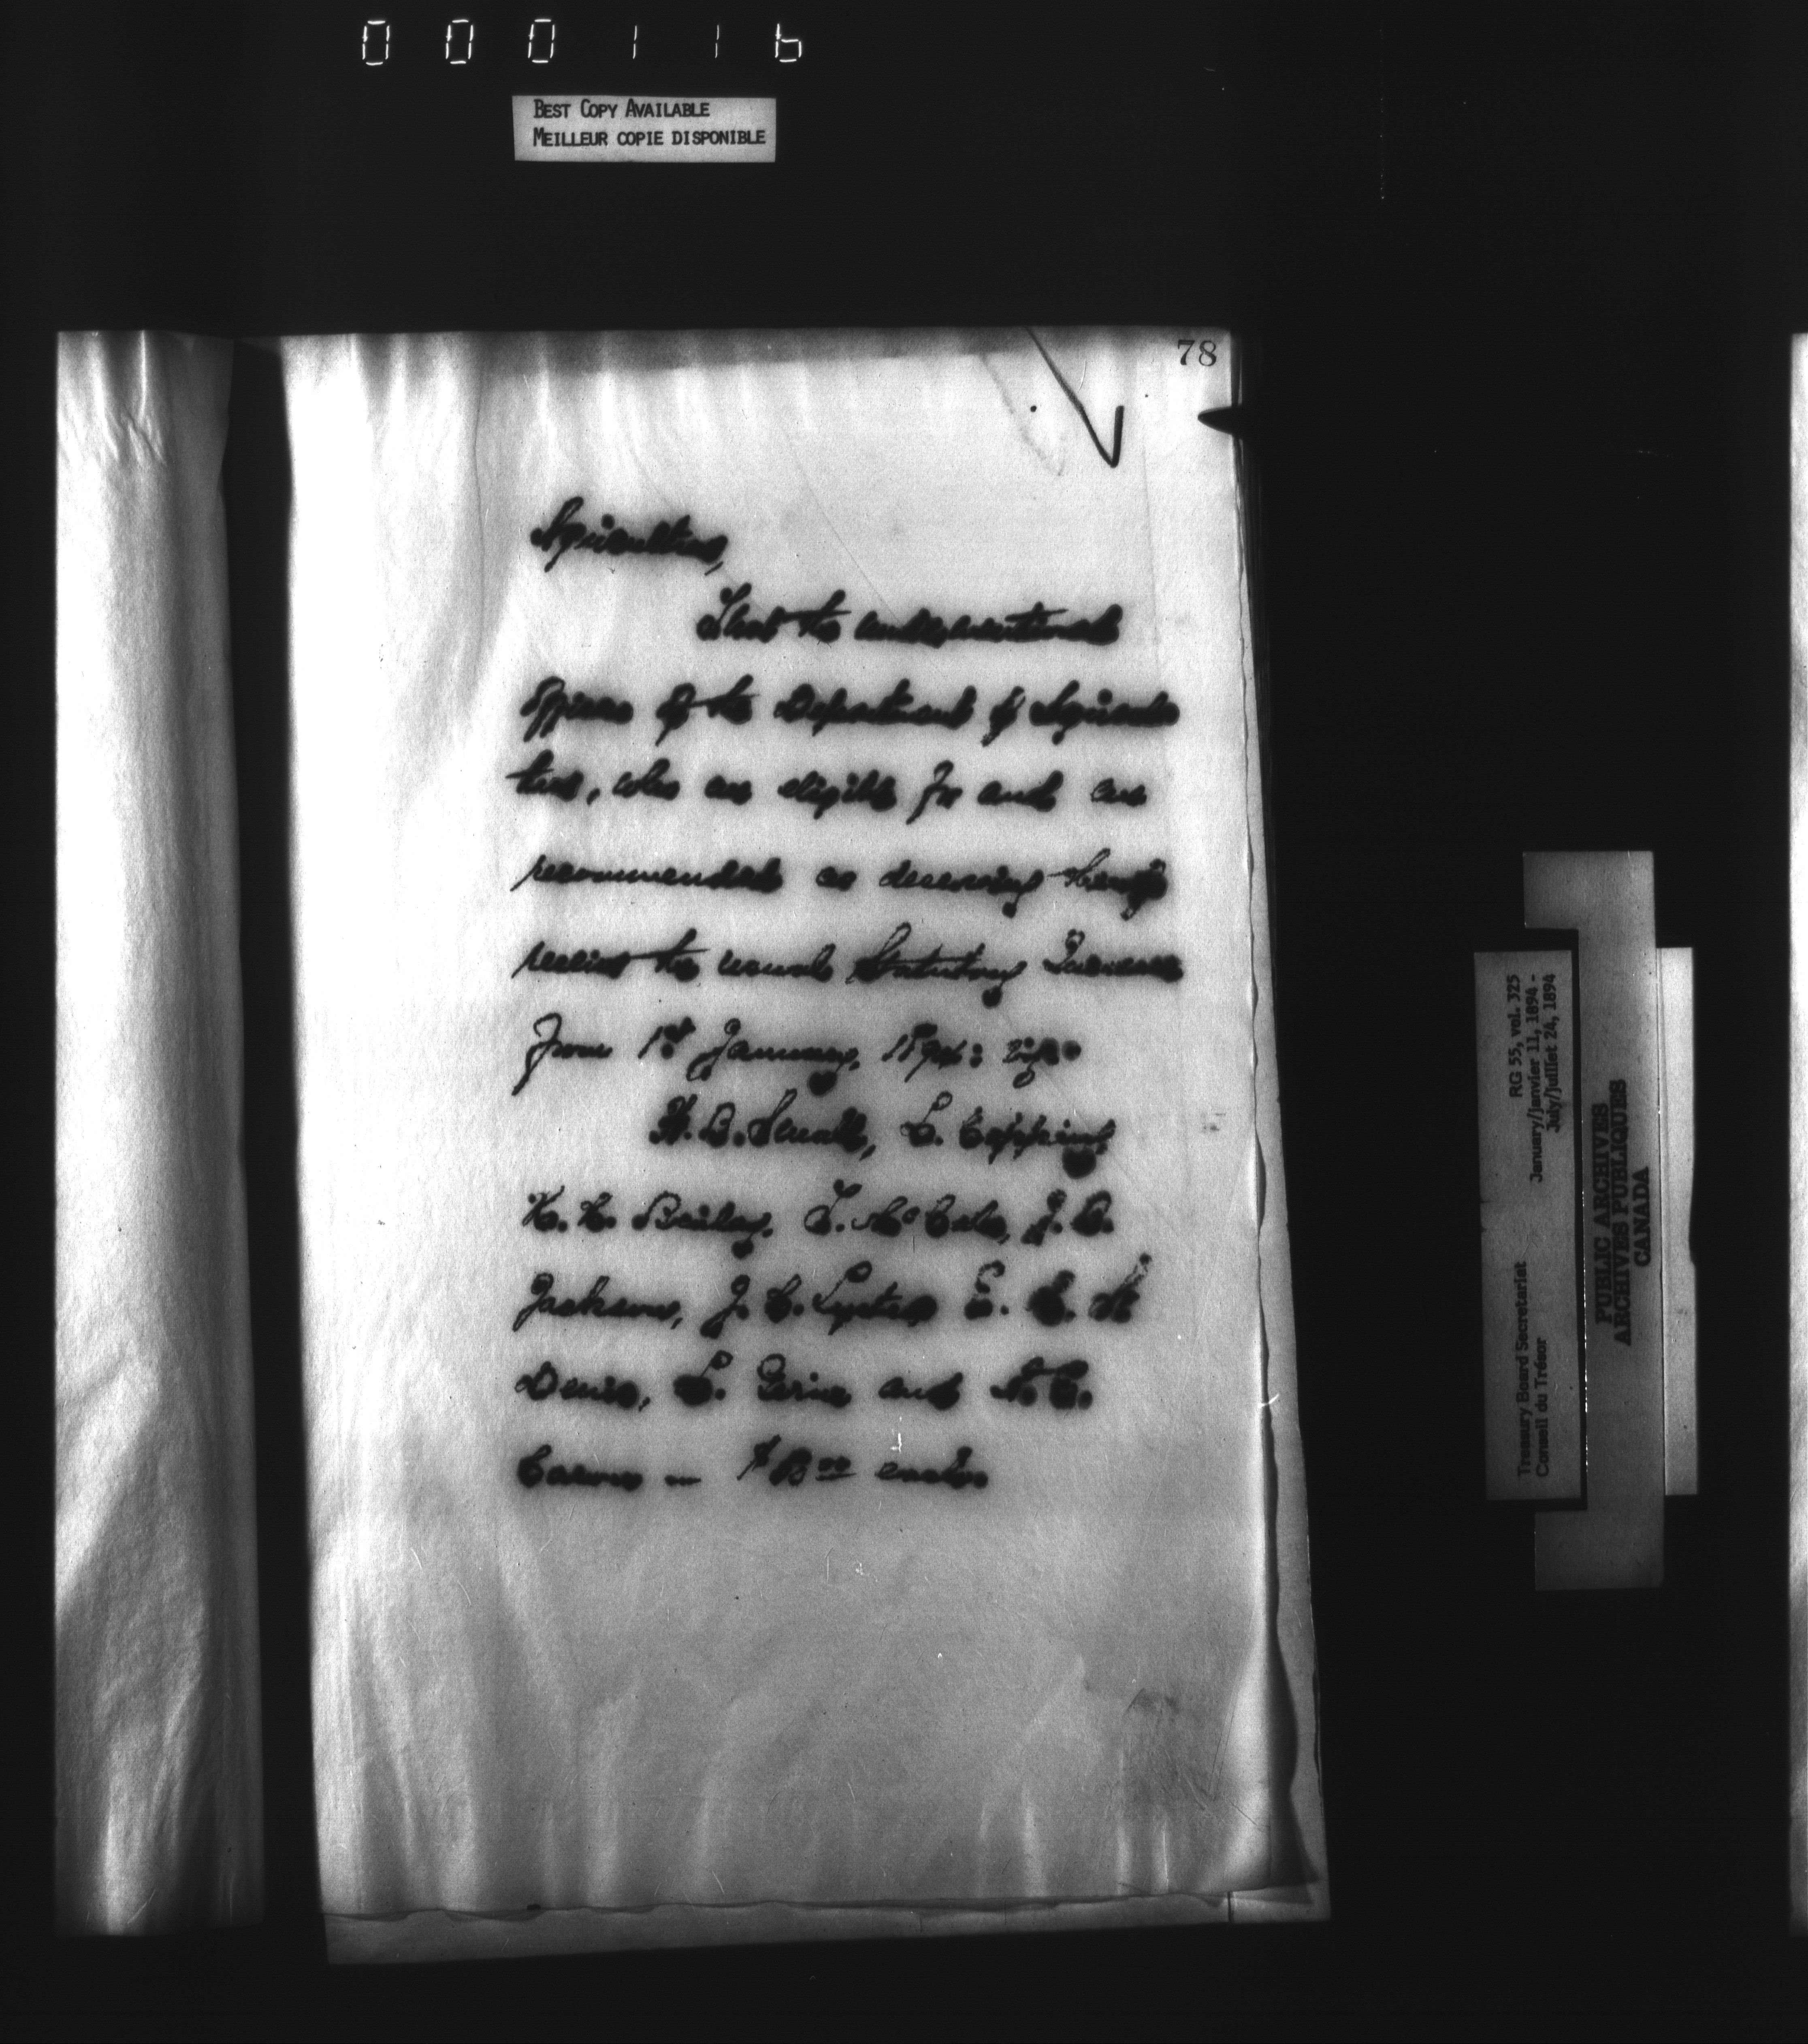 000116
BEST COPY AVAILABLE
MEILLEUR COPIE DISPONIBLE
78
Agriculture,
That the undermentioned
Officers of the Department of Agricul
ture, who are eligible for and are
recommended as deserving thereof
receive the usual Statutory Increase
from 1st January, 1894: viz:-
H. B. Small, L.
H. H. Bailey, J. B.
Jackson, J. B. E. St
Denis, L. and
$ 50 00 each.
RG 55, vol. 325
January/janvier 11, 1894 -
July/juillet 24, 1894
Treasury Board Secretariat
Conseil du Trésor
PUBLIC ARCHIVES
ARCHIVES PUBLIQUES
CANADA